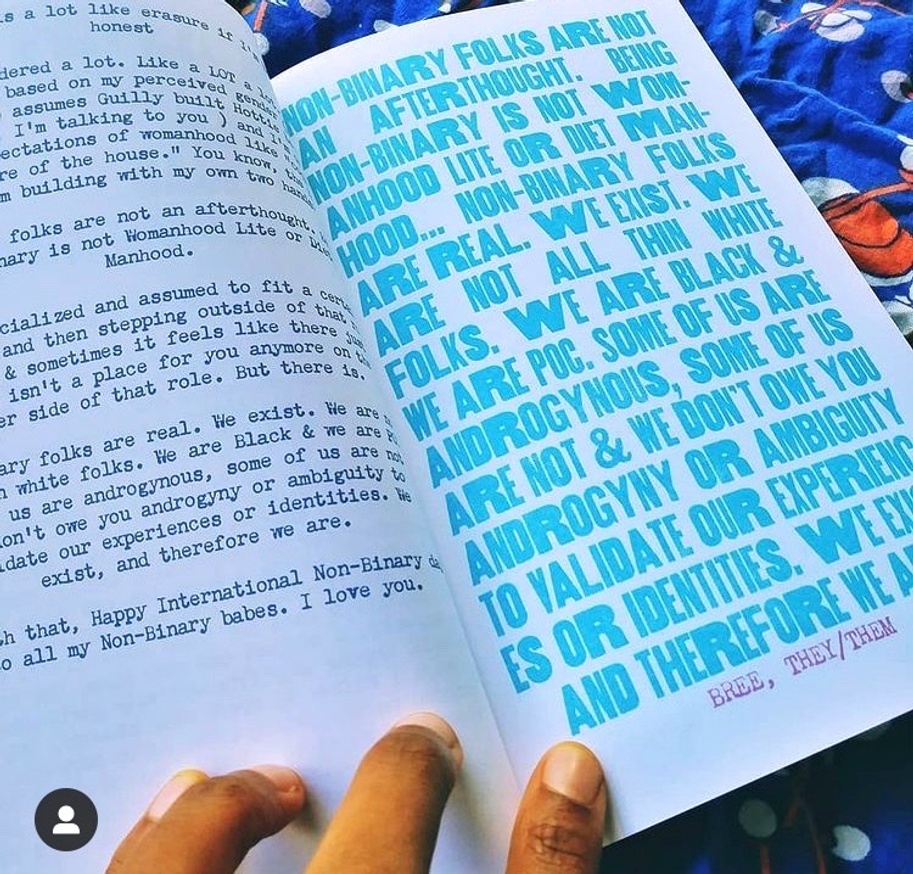 s a lot like erasure if I
honest
dered a lot. Like a LOT a lot
based on my perceived gender
assumes Guilly built Hottie
I'm talking to you ) and I
ectations of womanhood like
re of the house." You know, the
m building with my own two hands
folks are not an afterthought.
nary is not Womanhood Lite or Diet
Manhood.
cialized and assumed to fit a cert
and then stepping outside of that
& sometimes it feels like there jus
isn't a place for you anymore on
er side of that role. But there is.
ary folks are real. We exist. We are
n white folks. We are Black & we are
us are androgynous, some of us are not
on't owe you androgyny or ambiguity to
idate our experiences or identities. We
exist, and therefore we are.
h that, Happy International Non-Binary da
o all my Non-Binary babes. I love you.
NON-BINARY FOLKS ARE NOT
AN AFTERTHOUGHT. BEING
NON-BINARY IS NOT WOM-
ANHOOD LITE OR DIET MAN-
HOOD... NON-BINARY FOLKS
ARE REAL. WE EXIST. WE
ARE NOT ALL THIN WHITE
FOLKS. WE ARE BLACK &
WE ARE POC. SOME OF US ARE
ANDROGYNOUS, SOME OF US
ARE NOT & WE DON'T OWE YOU
ANDROGYNY OR AMBIGUITY
TO VALIDATE OUR EXPERIENC
ES OR IDENTITIES. WE EXI
AND THEREFORE WE A
BREE, THEY/THEM